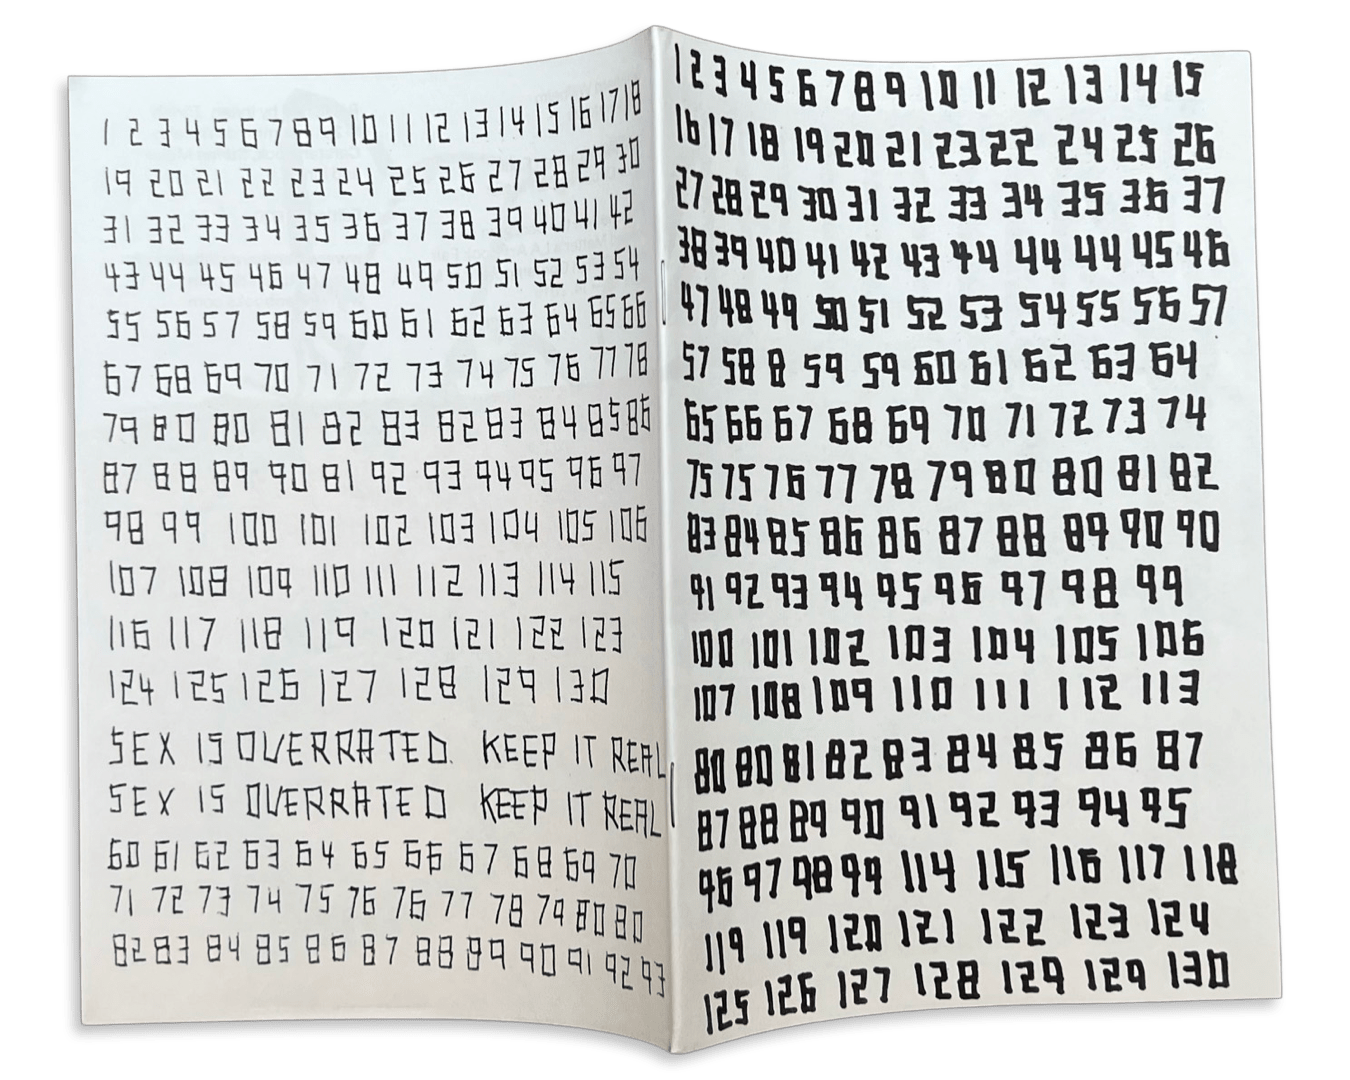 1 2 3 4 5 6 7 8 9 10 11 12 13 14 15 16 17 18
19 20 21 22 23 24 25 26 27 28 29 30
31 32 33 34 35 36 37 38 39 40 41 42
43 44 45 46 47 48 49 50 51 52 53 54
55 56 57 58 59 60 61 62 63 64 65 66
67 68 69 70 71 72 73 74 75 76 77 78
79 80 80 81 82 83 82 83 84 85 86
87 88 89 90 81 92 93 94 95 96 97
98 99 100 101 102 103 104 105 106
107 108 109 110 111 112 113 114 115
116 117 118 119 120 121 122 123
124 125 126 127 128 129 130
SEX IS OVERRATED. KEEP IT REAL
SEX IS OVERRATED KEEP IT REAL
60 61 62 63 64 65 66 67 68 69 70
71 72 73 74 75 76 76 77 78 79 80 80
82 83 84 85 86 87 88 89 90 91 92 93
1 2 3 4 5 6 7 8 9 10 11 12 13 14 15
16 17 18 19 20 21 23 22 24 25 26
27 28 29 30 31 32 33 34 35 36 37
38 39 40 41 42 43 44 44 44 45 46
47 48 49 50 51 52 53 54 55 56 57
57 58 8 59 59 60 61 62 63 64
65 66 67 68 69 70 71 72 73 74
75 75 76 77 78 79 80 80 81 82
83 84 85 86 86 87 88 89 90 90
91 92 93 94 95 96 97 98 99
100 101 102 103 104 105 106
107 108 109 110 111 112 113
80 80 81 82 83 84 85 86 87
87 88 89 90 91 92 93 94 95
96 97 98 99 114 115 116 117 118
119 119 120 121 122 123 124
125 126 127 128 129 129 130